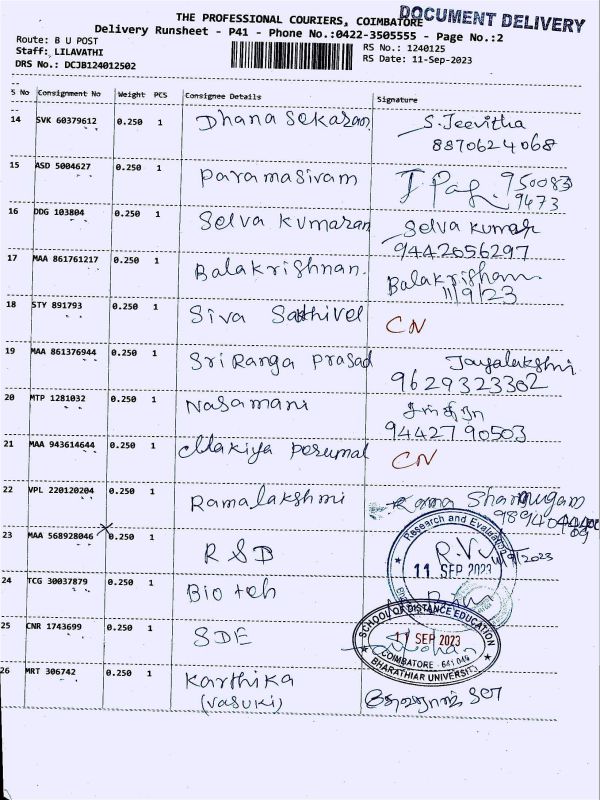 THE PROFESSIONAL COURIERS, COIMBATORE
DOCUMENT DELIVERY
Delivery Runsheet - P41 - Phone No.:0422-3505555 - Page No.:2
Route: B U POST
RS No.: 1240125
Staff: LILAVATHI
RS Date: 11-Sep-2023
DRS No.: DCJB124012502
S No Consignment No Weight PCS Consignee Details Signature
14 SVK 60379612 0.250 1 Dhana Sekaran S. Jeevitha
8870624068
15 ASD 5004627 0.250 1 Paramasivam 950083
9473
16 DDG 103804 0.250 1 Selva Kumaran Selva Kumar
9442656297
17 MAA 861761217 0.250 1 Balakrishnan.
11/9/23
18 STY 891793 0.250 1 Siva Sakthivel CN
19 MAA 861376944 0.250 1 Sri Ranga Prasad Jayalakshmi
9629323302
20 MTP 1281032 0.250 1 Nagamani
9442790503
21 MAA 943614644 0.250 1 perumal CN
22 VPL 220120204 0.250 1 Ramalakshmi Rama Shanmugam
23 MAA 568928046 0.250 1 RSD
Research and Evaluation
11 SEP 2023
24 TCG 30037879 0.250 1 Bio teh
25 CNR 1743699 0.250 1 SDE
SCHOOL OF DISTANCE EDUCATION
11 SEP 2023
COIMBATORE - 641 046
BHARATHIAR UNIVERSITY
26 MRT 306742 0.250 1 Karthika
(Vasuki)